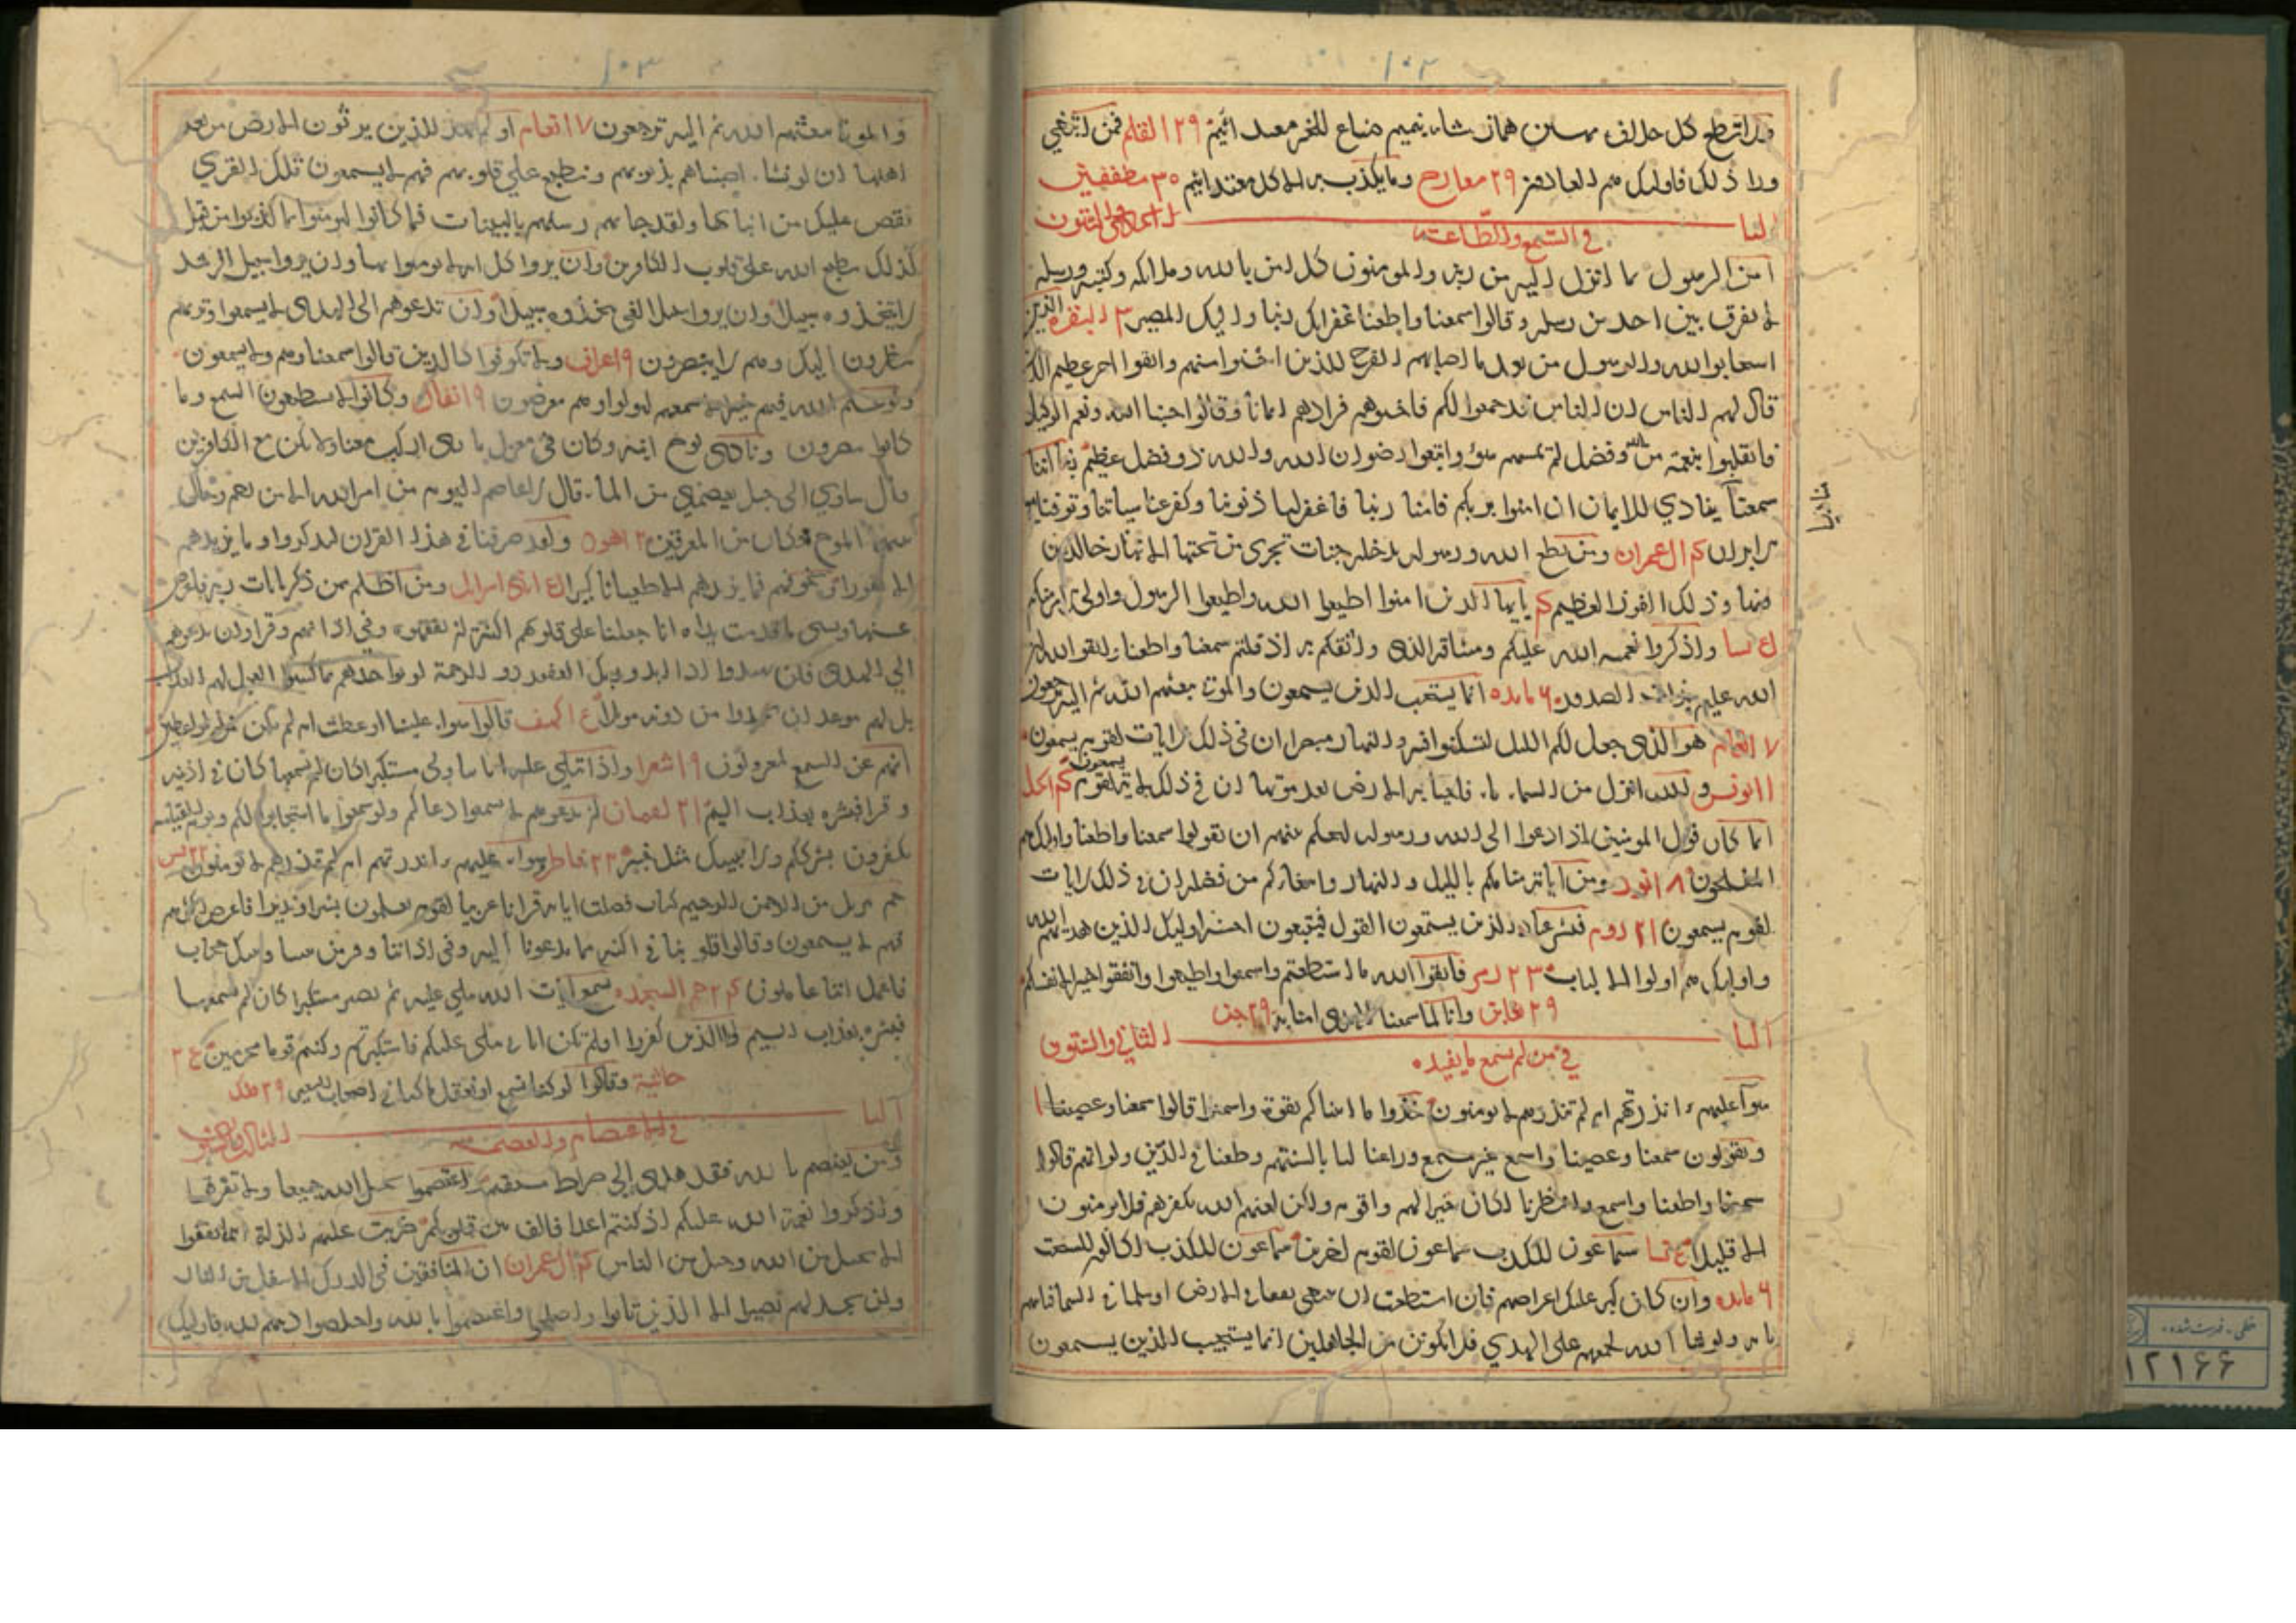 ١٠٢
ولا تطع كل حلاف مهين هماز مشاء بنميم مناع للخير معتد اثيم ٢٩ القلم فمن ابتغي
وراء ذلك فاوليك هم العادون ٢٩ معارج وما يكذب به الا كل معتد اثيم ٣٠ مطففين
الباب الحادي والستون
في السمع والطاعة
امن الرسول بما انزل اليه من ربه والمومنون كل امن بالله وملائكته وكتبه ورسله
لا نفرق بين احد من رسله وقالوا سمعنا واطعنا غفرانك ربنا واليك المصير ٣ البقره الذين
استجابوا لله والرسول من بعد ما اصابهم القرح للذين احسنوا منهم واتقوا اجر عظيم الذين
قال لهم الناس ان الناس قد جمعوا لكم فاخشوهم فزادهم ايمانا وقالوا حسبنا الله ونعم الوكيل
فانقلبوا بنعمة من الله وفضل لم يمسسهم سوء واتبعوا رضوان الله والله ذو فضل عظيم ربنا اننا
سمعنا
مناديا
ينادي للايمان ان امنوا بربكم فامنا ربنا فاغفر لنا ذنوبنا وكفر عنا سياتنا وتوفنا مع
الابرار ٤ ال عمران ومن يطع الله ورسوله يدخله جنات تجري من تحتها الانهار خالدين
فيها وذلك الفوز العظيم ٤ يا ايها الذين امنوا اطيعوا الله واطيعوا الرسول واولي الامر منكم
نسا واذكروا نعمة الله عليكم وميثاقه الذي واثقكم به اذ قلتم سمعنا واطعنا واتقوا الله ان
الله عليم بذات الصدور ٦ مايده انما يستجيب الذين يسمعون والموتا يبعثهم الله ثم اليه يرجعون
٧ انعام هو الذي جعل لكم الليل لتسكنوا فيه والنهار مبصرا ان في ذلك لايات لقوم يسمعون
١١ يونس والله انزل من السماء ماء فاحيا به الارض بعد موتها ان في ذلك لاية لقوم يسمعون نحل
انما كان قول المومنين اذا دعوا الى الله ورسوله ليحكم بينهم ان يقولوا سمعنا واطعنا واوليك هم
المفلحون ١٨ نور ومن آياته منامكم بالليل والنهار وابتغاركم من فضله ان في ذلك لايات
لقوم يسمعون ٢١ روم فبشر عباد الذين يستمعون القول فيتبعون احسنه اوليك الذين هديهم الله
واوليك هم اولوا الالباب ٢٣ زمر فاتقوا الله ما استطعتم واسمعوا واطيعوا وانفقوا خيرا لانفسكم
٢٩ تغابن وانا لما سمعنا الهدي امنا به ٢٩ جن
الباب الثاني والستون
في من لم يسمع ما يفيده
سواء عليهم ءانذرتهم ام لم تنذرهم لا يومنون خذوا ما اتيناكم بقوة واسمعوا قالوا سمعنا وعصينا ١
ويقولون سمعنا وعصينا واسمع غير مسمع وراعنا ليا بالسنتهم وطعنا في الدين ولو انهم قالوا
سمعنا واطعنا واسمع وانظرنا لكان خيرا لهم واقوم ولكن لعنهم الله بكفرهم فلا يومنون
الا قليلا نسا سماعون للكذب سماعون لقوم اخرين سماعون للكذب اكالون للسحت
٦ مايده وان كان كبر عليك اعراضهم فان استطعت ان تبتغي نفقا في الارض او سلما في السما فتاتيهم
باية ولو شا الله لجمعهم على الهدي فلا تكونن من الجاهلين انما يستجيب الذين يسمعون
١٢١٦٦
١٠٣
والموتا يبعثهم الله ثم اليه ترجعون ٧ انعام اولم يهد للذين يرثون الارض من بعد
اهلها ان لو نشاء اصبناهم بذنوبهم ونطبع علي قلوبهم فهم لا يسمعون تلك القري
نقص عليك من انبائها ولقد جاءتهم رسلهم بالبينات فما كانوا ليومنوا بما كذبوا من قبل
كذلك يطبع الله على قلوب الكافرين وان يروا كل اية لا يومنوا بها وان يروا سبيل الرشد
لا يتخذوه سبيلا وان يروا سبيل الغي يتخذوه سبيلا وان تدعوهم الى الهدى لا يسمعوا وتريهم
ينظرون اليك وهم لا يبصرون ٩ اعراف ولا تكونوا كالذين قالوا سمعنا وهم لا يسمعون
ولو علم الله فيهم خيرا لاسمعهم لتولوا وهم معرضون ٩ انفال وكانوا لا يستطيعون السمع وما
كانوا يبصرون ونادى نوح ابنه وكان في معزل يا بني اركب معنا ولا تكن مع الكافرين
قال ساوي الى جبل يعصمني من الماء قال لا عاصم اليوم من امر الله الا من رحم وحال
بينهما الموج فكان من المغرقين ١٢ هود ولقد صرفنا في هذا القران ليذكروا وما يزيدهم
الا نفورا ونخوفهم فما يزيدهم الا طغيانا كبيرا بني اسرايل ومن اظلم ممن ذكر بايات ربه فاعرض
عنها ونسي ما قدمت يداه انا جعلنا على قلوبهم اكنة ان يفقهوه وفي اذانهم وقرا وان تدعوهم
الي الهدى فلن يهتدوا اذا ابدا وربك الغفور ذو الرحمة لو يواخذهم بما كسبوا لعجل لهم العذاب
بل لهم موعد لن يجدوا من دونه موئلا كهف قالوا سواء علينا اوعظت ام لم تكن من الواعظين
انهم عن السمع لمعزولون ١٩ شعرا واذا تتلي عليه اياتنا ولى مستكبرا كان لم يسمعها كان في اذنيه
وقرا فبشره بعذاب اليم ٢١ لقمان ان تدعوهم لا يسمعوا دعاكم ولو سمعوا ما استجابوا لكم ويوم القيامة
يكفرون بشرككم ولا ينبيك مثل خبير ٢٢ فاطر وسواء عليهم ءانذرتهم ام لم تنذرهم لا يومنون ٢٢ يس
حم تنزيل من الرحمن الرحيم كتاب فصلت اياته قرانا عربيا لقوم يعلمون بشيرا ونذيرا فاعرض اكثرهم
فهم لا يسمعون وقالوا قلوبنا في اكنة مما تدعونا اليه وفي اذاننا وقر ومن بيننا وبينك حجاب
فاعمل اننا عاملون حم السجده يسمع آيات الله تتلى عليه ثم يصر مستكبرا كان لم يسمعها
فبشره بعذاب اليم واما الذين كفروا افلم تكن اياتي تتلى عليكم فاستكبرتم وكنتم قوما مجرمين
جاثية وقالوا لو كنا نسمع او نعقل ما كنا في اصحاب السعير ٢٩ ملك
الباب الثالث والستون
في الاعتصام والعصمت
ومن يعتصم بالله فقد هدى الى صراط مستقيم واعتصموا بحبل الله جميعا ولا تفرقوا
واذكروا نعمة الله عليكم اذ كنتم اعداء فالف بين قلوبكم ضربت عليهم الذلة اينما ثقفوا
الا بحبل من الله وحبل من الناس ٤ ال عمران ان المنافقين في الدرك الاسفل من النار
ولن تجد لهم نصيرا الا الذين تابوا واصلحوا واعتصموا بالله واخلصوا دينهم لله فاوليك